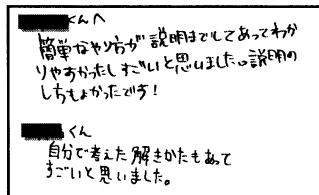 くんへ
簡単なやり方が説明までしてあってわか
りやすかったしすごいと思いました。説明の
しかたもよかったです!
くん
自分で考えた解きかたもあって
すごいと思いました。